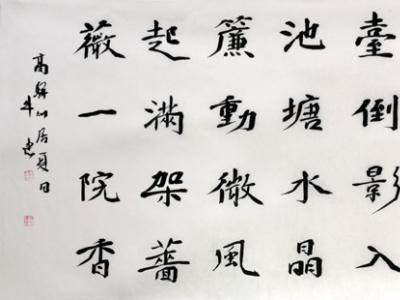 臺倒影入
池塘水晶
簾動微風
起滿架薔
薇一院香
高駢山居夏日